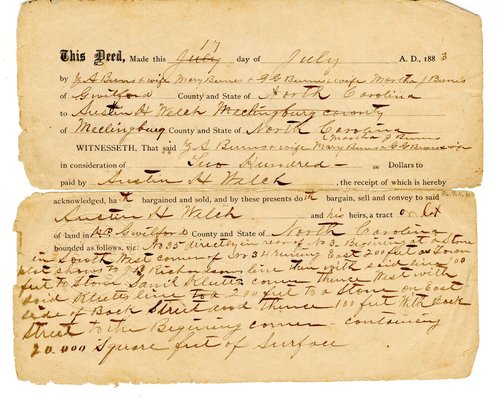 This Deed, Made this July 17 day of July A. D., 1883
by G A Burns & wife Mary Burns & G G Burns & wife Martha J Burns
of Gwilford County and State of North Carolina
to Austin H Welch Mecllingburg county
of Mecllingburg County and State of North Carolina
WITNESSETH, That said G A Burns & wife Mary Burns & G G Burns & wife Martha J Burns
in consideration of Two Hundred in Dollars to
paid by Austin H Welch, the receipt of which is hereby
acknowledged, hath bargained and sold, and by these presents doth bargain, sell and convey to said
Austin H Welch and his heirs, a tract or Lot
of land in Gwilford County and State of North Carolina
bounded as follows, viz: No 35 directley in rear of No 3 Begining at a Stone
in South West corner of No 34 runing East 200 feet as Town
plot shows to Richardson line then with said line 100
feet to Stone corner thence West with
said line to a 200 feet to a stone on East
side of Back Street and thence 100 feet With Back
Street to the Begining corner containing
20.000 Square feet of Surface